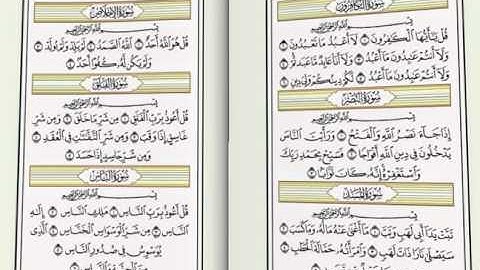 سُورَةُ الكَافِرُونَ
بِسْمِ اللَّهِ الرَّحْمَٰنِ الرَّحِيمِ
قُلْ يَٰٓأَيُّهَا ٱلْكَٰفِرُونَ ١ لَآ أَعْبُدُ مَا تَعْبُدُونَ ٢
وَلَآ أَنتُمْ عَٰبِدُونَ مَآ أَعْبُدُ ٣ وَلَآ أَنَا۠ عَابِدٌ مَّا عَبَدتُّمْ ٤
وَلَآ أَنتُمْ عَٰبِدُونَ مَآ أَعْبُدُ ٥ لَكُمْ دِينُكُمْ وَلِىَ دِينِ ٦
سُورَةُ النَّصْرِ
بِسْمِ اللَّهِ الرَّحْمَٰنِ الرَّحِيمِ
إِذَا جَآءَ نَصْرُ ٱللَّهِ وَٱلْفَتْحُ ١ وَرَأَيْتَ ٱلنَّاسَ
يَدْخُلُونَ فِى دِينِ ٱللَّهِ أَفْوَاجًا ٢ فَسَبِّحْ بِحَمْدِ رَبِّكَ
وَٱسْتَغْفِرْهُ إِنَّهُۥ كَانَ تَوَّابًۢا ٣
سُورَةُ المَسَدِ
بِسْمِ اللَّهِ الرَّحْمَٰنِ الرَّحِيمِ
تَبَّتْ يَدَآ أَبِى لَهَبٍ وَتَبَّ ١ مَآ أَغْنَىٰ عَنْهُ مَالُهُۥ وَمَا كَسَبَ ٢
سَيَصْلَىٰ نَارًا ذَاتَ لَهَبٍ ٣ وَٱمْرَأَتُهُۥ حَمَّالَةَ ٱلْحَطَبِ ٤
سُورَةُ الإِخْلَاصِ
بِسْمِ اللَّهِ الرَّحْمَٰنِ الرَّحِيمِ
قُلْ هُوَ ٱللَّهُ أَحَدٌ ١ ٱللَّهُ ٱلصَّمَدُ ٢ لَمْ يَلِدْ وَلَمْ يُولَدْ ٣
وَلَمْ يَكُن لَّهُۥ كُفُوًا أَحَدٌۢ ٤
سُورَةُ الفَلَقِ
بِسْمِ اللَّهِ الرَّحْمَٰنِ الرَّحِيمِ
قُلْ أَعُوذُ بِرَبِّ ٱلْفَلَقِ ١ مِن شَرِّ مَا خَلَقَ ٢ وَمِن شَرِّ
غَاسِقٍ إِذَا وَقَبَ ٣ وَمِن شَرِّ ٱلنَّفَّٰثَٰتِ فِى ٱلْعُقَدِ ٤
وَمِن شَرِّ حَاسِدٍ إِذَا حَسَدَ ٥
سُورَةُ النَّاسِ
بِسْمِ اللَّهِ الرَّحْمَٰنِ الرَّحِيمِ
قُلْ أَعُوذُ بِرَبِّ ٱلنَّاسِ ١ مَلِكِ ٱلنَّاسِ ٢ إِلَٰهِ
ٱلنَّاسِ ٣ مِن شَرِّ ٱلْوَسْوَاسِ ٱلْخَنَّاسِ ٤ ٱلَّذِى
يُوَسْوِسُ فِى صُدُورِ ٱلنَّاسِ ٥
مِنَ ٱلْجِنَّةِ وَٱلنَّاسِ